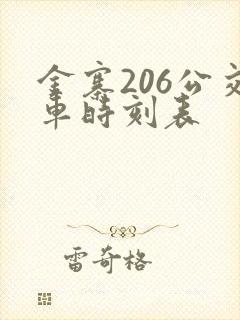 金寨206公交
車時刻表
雷奇格